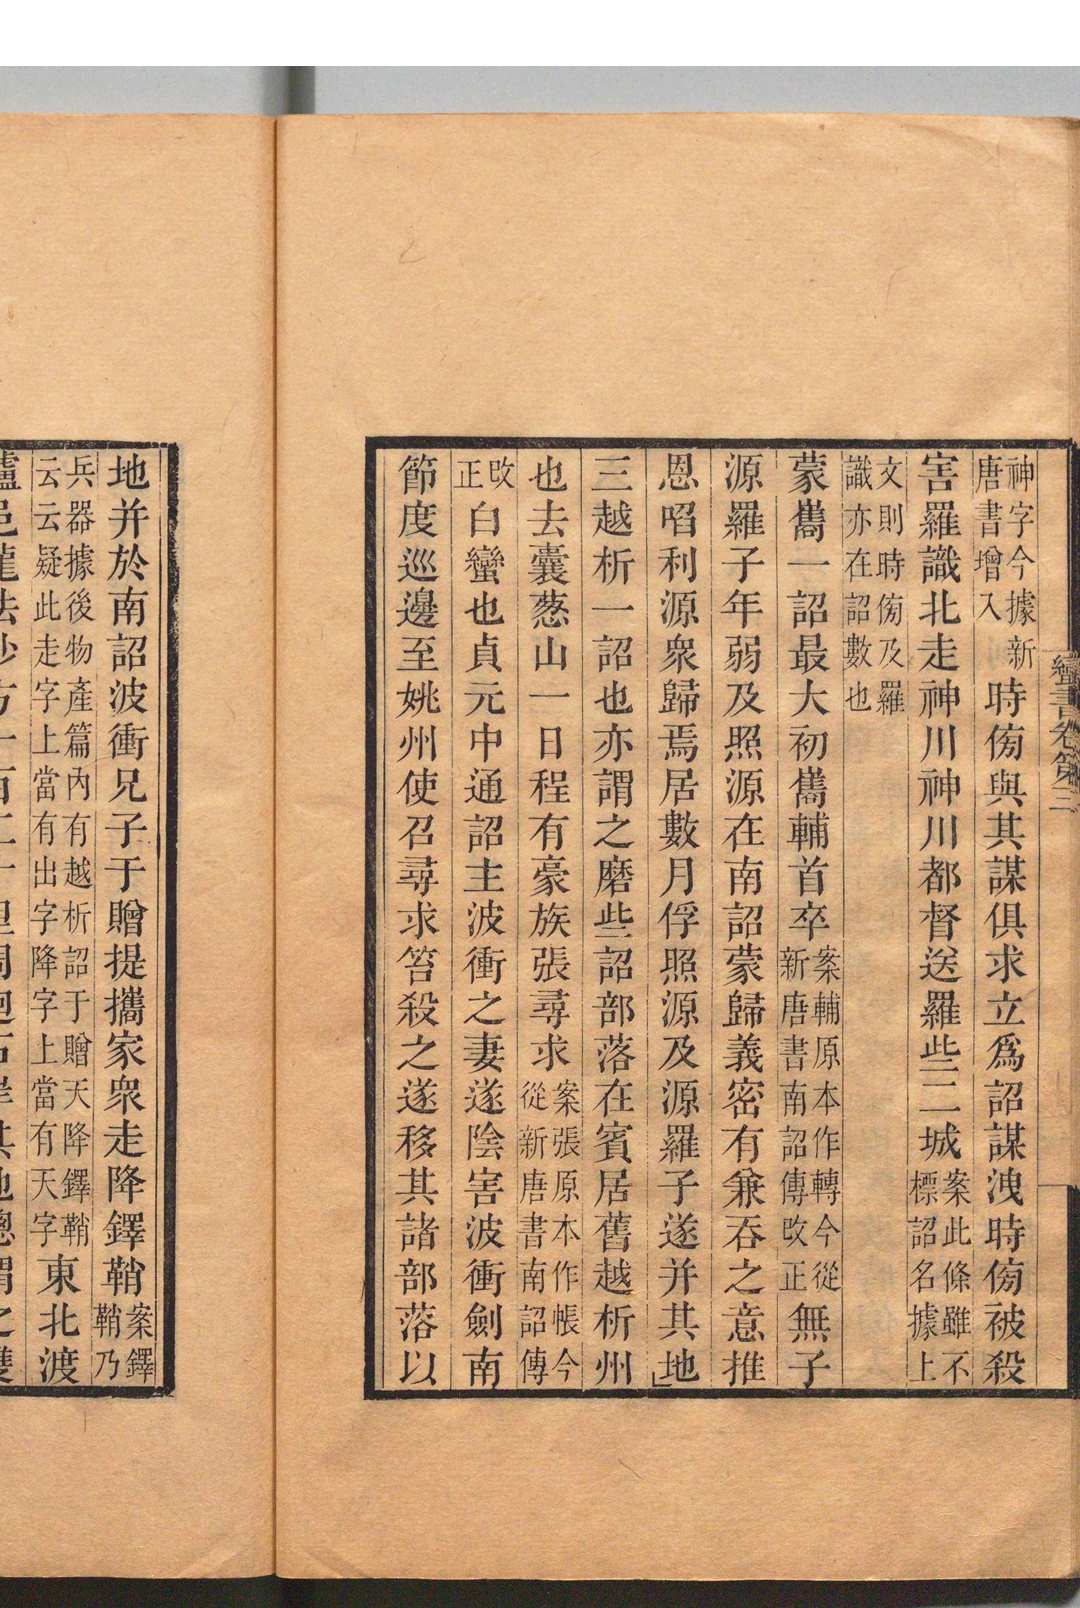 蠻書卷第三
神字今據新
唐書增入
時傍與其謀俱求立爲詔謀洩時傍被殺
害羅識北走神川神川都督送羅些二城
案此條雖不
標詔名據上
文則時傍及羅
識亦在詔數也
蒙嶲一詔最大初嶲輔首卒
案輔原本作轉今從
新唐書南詔傳改正
無子
源羅子年弱及照源在南詔蒙歸義密有兼吞之意推
恩啗利源衆歸焉居數月俘照源及源羅子遂并其地
三越析一詔也亦謂之磨些詔部落在賓居舊越析州
也去囊葱山一日程有豪族張尋求
案張原本作帳今
從新唐書南詔傳
改
正
白蠻也貞元中通詔主波衝之妻遂陰害波衝劍南
節度巡邊至姚州使召尋求笞殺之遂移其諸部落以
地并於南詔波衝兄子于贈提攜家衆走降鐸鞘
案鐸
鞘乃
兵器據後物產篇內有越析詔于贈天降鐸鞘
云云疑此走字上當有出字降字上當有天字
東北渡